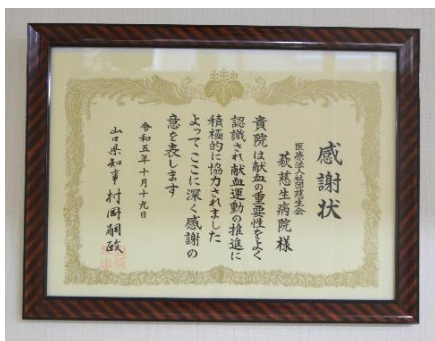 感謝状
医療法人社団慈生会
萩慈生病院様
貴院は献血の重要性をよく
認識され献血運動の推進に
積極的に協力されました
よってここに深く感謝の
意を表します
令和五年十月十九日
山口県知事 村岡嗣政